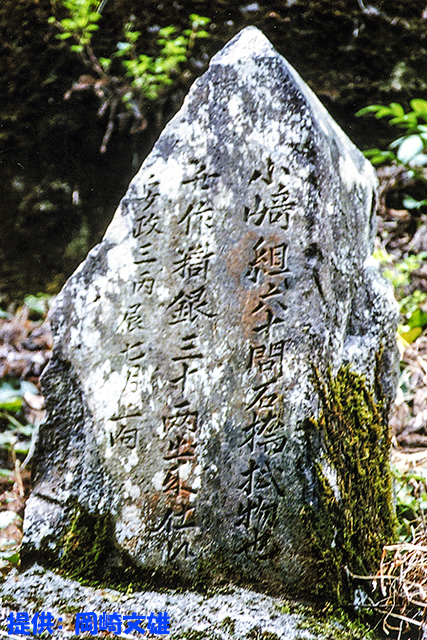 小﨑組六十間石橋拵物也
作嶽銀三十両出来仕
安政三丙辰七月上旬
提供：岡崎文雄